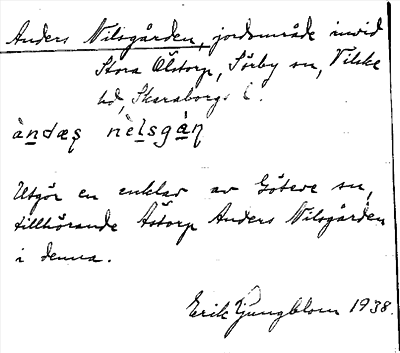 Anders Nilsgården, jordområde invid
Stora Ölstorp, Sörby sn, Vilske
hd, Skaraborgs l.
àndæș nèlsgán
Utgör en enklav av Göteve sn,
tillhörande Åstorp Anders Nilsgården
i denna.
Erik Ljungblom 1938.